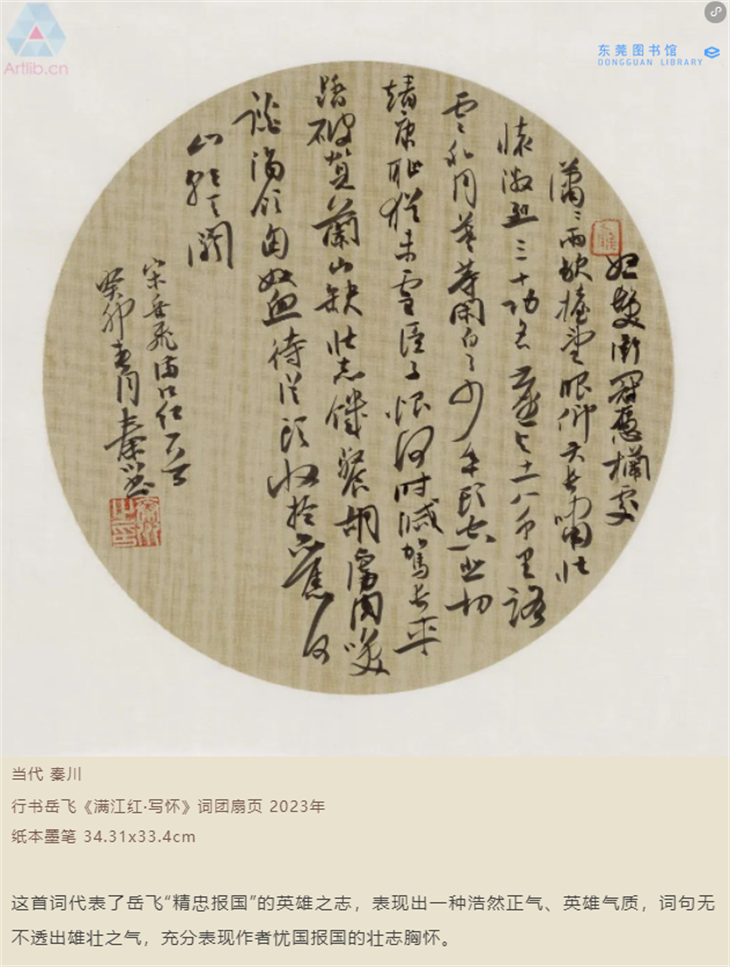 Artlib.cn
东莞图书馆
DONGGUAN LIBRARY
怒髮衝冠憑欄處
瀟瀟雨歇擡望眼仰天長嘯壯
懷激烈三十功名塵與土八千里路
雲和月莫等閑白了少年頭空悲切
靖康恥猶未雪臣子恨何時滅駕長車
踏破賀蘭山缺壯志饑餐胡虜肉笑
談渴飲匈奴血待從頭收拾舊河
山朝天闕
宋岳飛滿江紅
癸卯月秦川
当代 秦川
行书岳飞《满江红·写怀》词团扇页 2023年
纸本墨笔 34.31x33.4cm
这首词代表了岳飞“精忠报国”的英雄之志，表现出一种浩然正气、英雄气质，词句无
不透出雄壮之气，充分表现作者忧国报国的壮志胸怀。